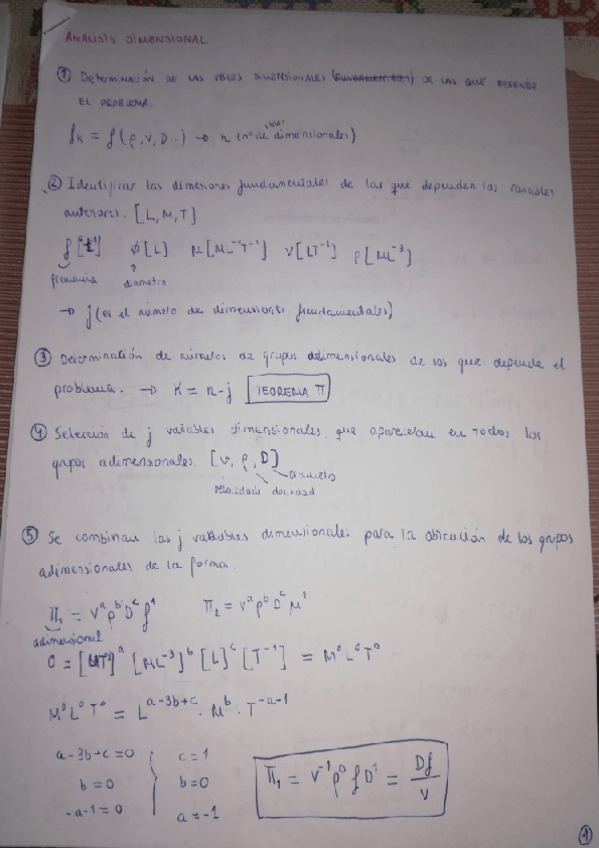 ANALISIS DIMENSIONAL
① Determinación de las vbles dimensionales (fundamentales) de las que depende
el problema.
fk = f(ρ, v, D...) → n (nº de vbles dimensionales)
② Identificar las dimesiones fundamentales de las que dependen las variables
anteriores. [L, M, T]
f [T⁻¹] ϕ[L] μ[ML⁻¹T⁻¹] v[LT⁻¹] ρ[ML⁻³]
frecuencia diametro
→ j (es el número de dimensiones fundamentales)
③ Determinación de números de grupos adimensionales de los que depende el
problema. → K = n-j TEOREMA π
④ Selección de j variables dimensionales que aparezcan en todos los
grupos adimensionales. [v, ρ, D]
velocidad densidad diametro
⑤ Se combinan las j variables dimensionales para la obtención de los grupos
adimensionales de la forma.
π₁ = vᵃρᵇDᶜf¹ π₂ = vᵃρᵇDᶜμ¹
adimensional
0 = [LT⁻¹]ᵃ [ML⁻³]ᵇ [L]ᶜ [T⁻¹] = M⁰L⁰T⁰
M⁰L⁰T⁰ = Lᵃ⁻³ᵇ⁺ᶜ · Mᵇ · T⁻ᵃ⁻¹
a-3b+c=0 c=1
b=0 b=0
-a-1=0 a=-1
π₁ = v⁻¹ρ⁰fD¹ = Df/v
1